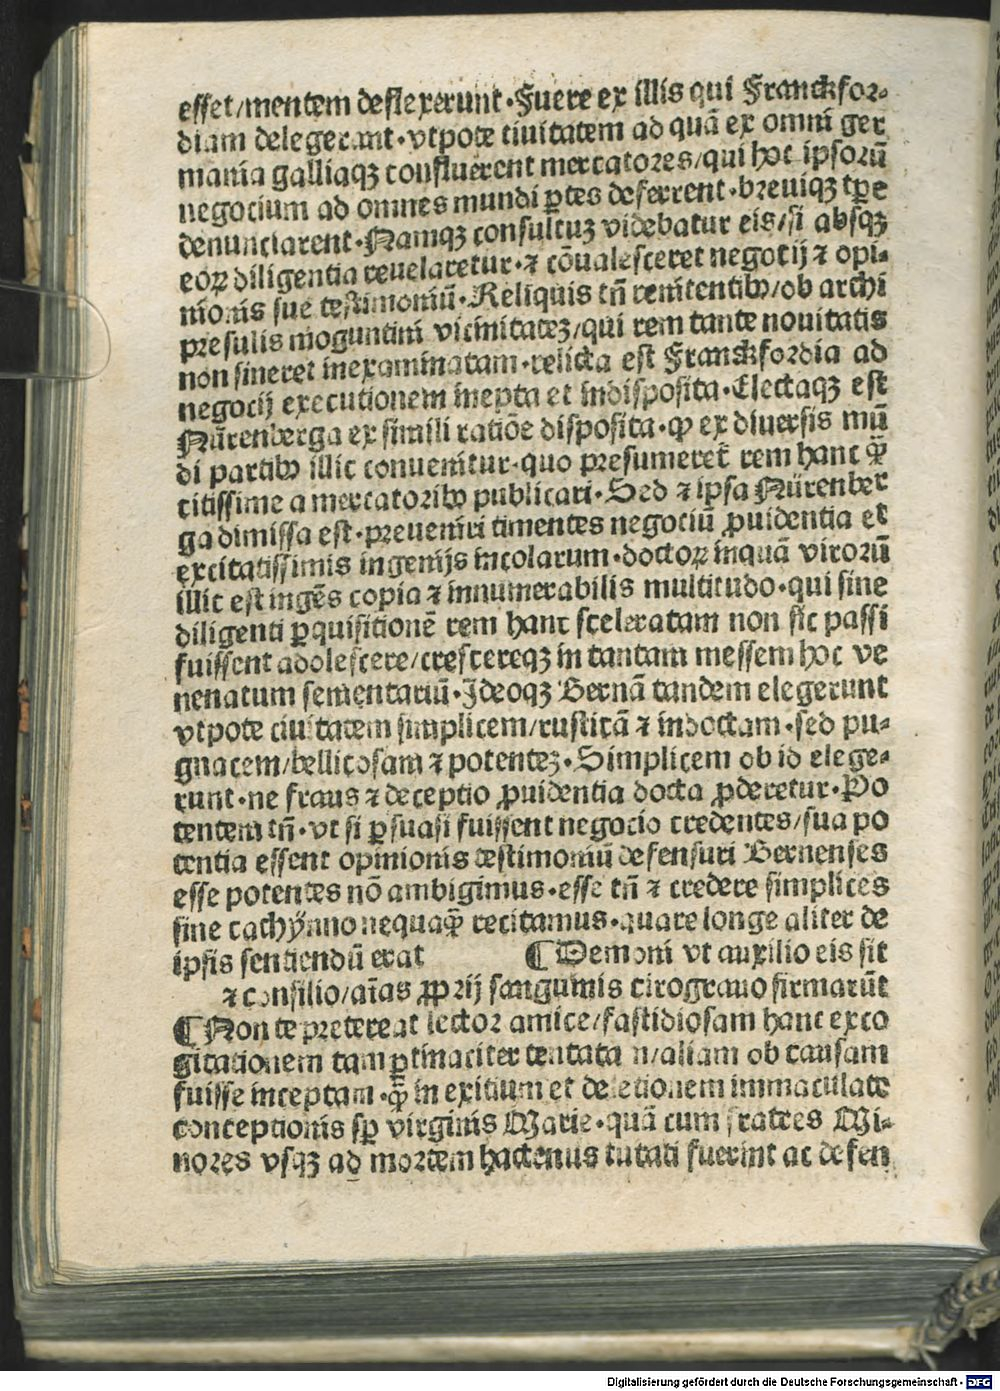 esset/mentem deflexerunt·Fuere ex illis qui Franckfor⸗
diam delegerant·vtpote ciuitatem ad quā ex omni ger
mania galliaqꝫ confluerent mercatores/qui hoc ipsorū
negocium ad omnes mundi ꝑtes deferrent·breuiqꝫ tꝑe
denunciarent·Namqꝫ consultuꝫ videbatur eis/si absqꝫ
eoꝝ diligentia reuelaretur·⁊ cōualesceret negotij ⁊ opi⸗
nionis sue testimoniū·Reliquis tn̄ renitentibꝰ/ob archi
presulis moguntini vicinitateꝫ/qui rem tante nouitatis
non sineret inexaminatam·relicta est Franckfordia ad
negocij executionem inepta et indisposita·Electaqꝫ est
Nürenberga ex simili ratiōe disposita·ꝙ ex diuersis mū
di partibꝰ illic conuenitur·quo presumeret᷑ rem hanc ꝙ̄
citissime a mercatoribꝰ publicari·Sed ⁊ ipsa Nürenber
ga dimissa est·preueniri timentes negociū ꝓuidentia et
excitatissimis ingenijs incolarum·doctoꝝ inquā virorū
illic est ingēs copia ⁊ innumerabilis multitudo·qui sine
diligenti ꝑquisitionē rem hanc sceleratam non sic passi
fuissent adolescere/crescereqꝫ in tantam messem hoc ve
nenatum sementariū·Ideoqꝫ Bernā tandem elegerunt
vtpote ciuitatem simplicem/rusticā ⁊ indoctam·sed pu⸗
gnacem/bellicosam ⁊ potenteꝫ·Simplicem ob id elege⸗
runt·ne fraus ⁊ deceptio ꝓuidentia docta ꝓderetur·Po
tentem tn̄·vt si ꝑsuasi fuissent negocio credentes/sua po
tentia essent opinionis testimoniū defensuri Bernenses
esse potentes nō ambigimus·esse tn̄ ⁊ credere simplices
sine cachÿnno nequaꝙ̄ recitamus·quare longe aliter de
ipsis sentiendū erat ¶ Demoni vt auxilio eis sit
⁊ consilio/aīas ꝓprij sanguinis cirograuo firmarūt
¶ Non te pretereat lector amice/fastidiosam hanc exco
gitationem tam ꝑtinaciter tentatam/aliam ob causam
fuisse inceptam·ꝙ̄ in exitium et deletionem immaculate
conceptionis sꝑ virginis Marie·quā cum fratres Mi⸗
nores vsqꝫ ad mortem hactenus tutati fuerint ac defen
Digitalisierung gefördert durch die Deutsche Forschungsgemeinschaft - DFG